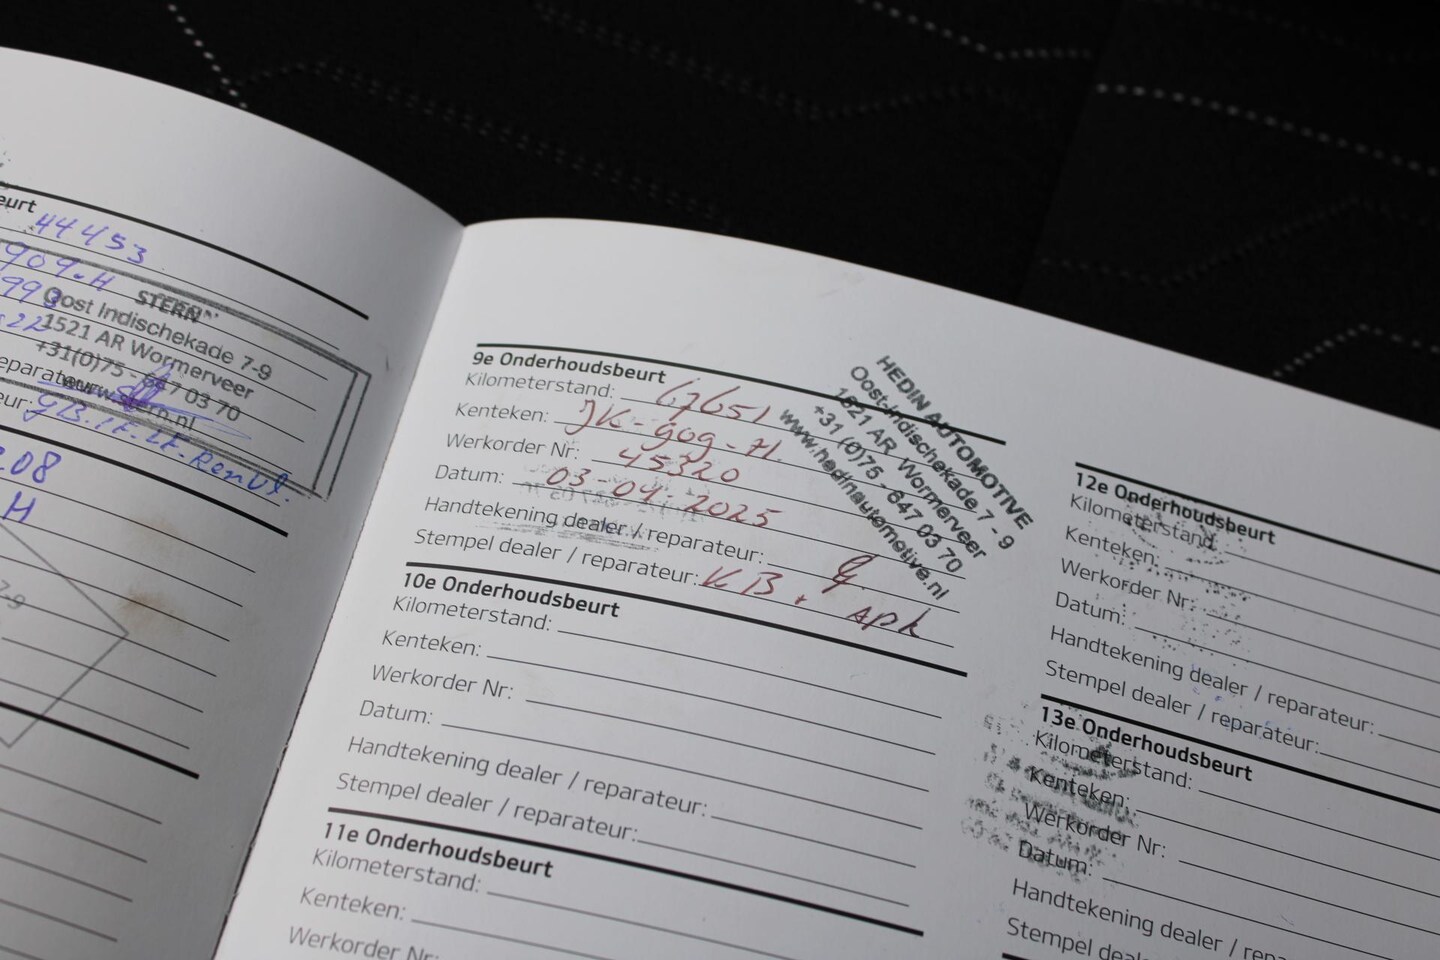 eurt
44453
909.H
STERN
Oost Indischekade 7-9
1521 AR Wormerveer
+31(0)75 - 647 03 70
www.stern.nl
eparateur:
eur:
.08
H
7-9
9e Onderhoudsbeurt
Kilometerstand: 67651
Kenteken: JK-909-H
Werkorder Nr: 45320
Datum: 03-04-2025
Handtekening dealer / reparateur:
Stempel dealer / reparateur: KB + APK
HEDIN AUTOMOTIVE
Oost-Indischekade 7 - 9
1521 AR Wormerveer
+31 (0)75 - 647 03 70
www.hedinautomotive.nl
10e Onderhoudsbeurt
Kilometerstand:
Kenteken:
Werkorder Nr:
Datum:
Handtekening dealer / reparateur:
Stempel dealer / reparateur:
11e Onderhoudsbeurt
Kilometerstand:
Kenteken:
Werkorder Nr:
12e Onderhoudsbeurt
Kilometerstand:
Kenteken:
Werkorder Nr:
Datum:
Handtekening dealer / reparateur:
Stempel dealer / reparateur:
13e Onderhoudsbeurt
Kilometerstand:
Kenteken:
Werkorder Nr:
Datum:
Handtekening dealer / repara
Stempel deale